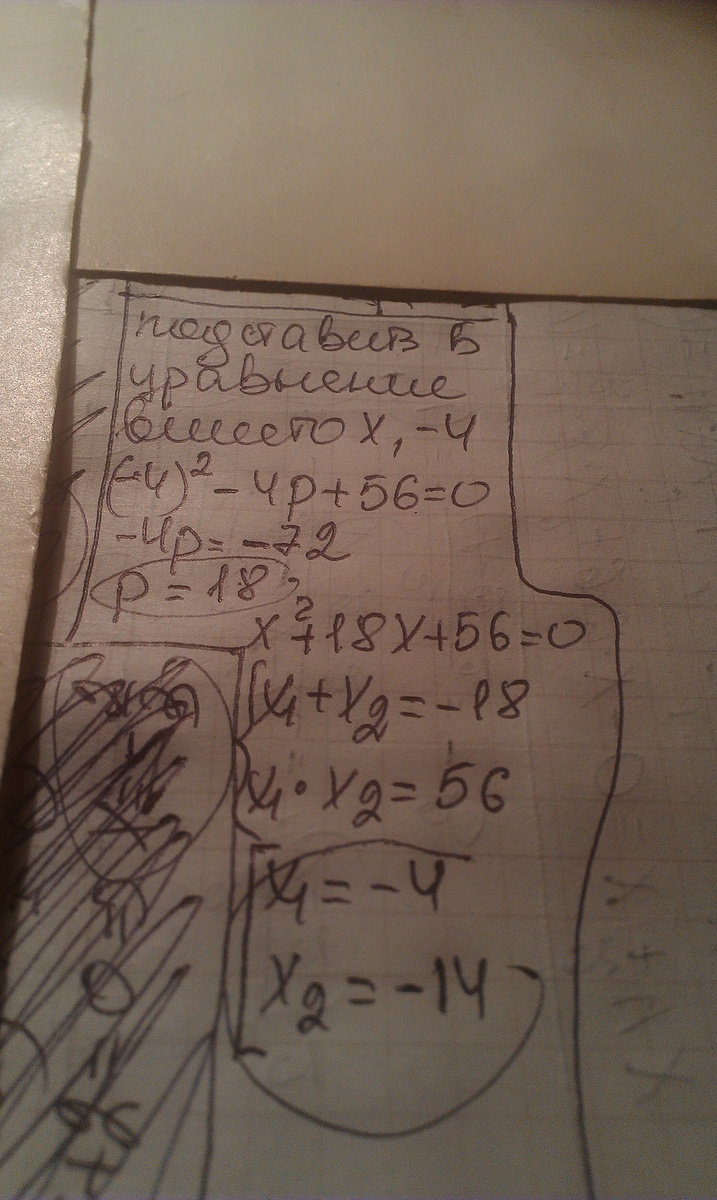 подставив в
уравнение
вместо x, -4
(-4)² - 4p + 56 = 0
-4p = -72
p = 18
x² + 18x + 56 = 0
x₁ + x₂ = -18
x₁ · x₂ = 56
x₁ = -4
x₂ = -14